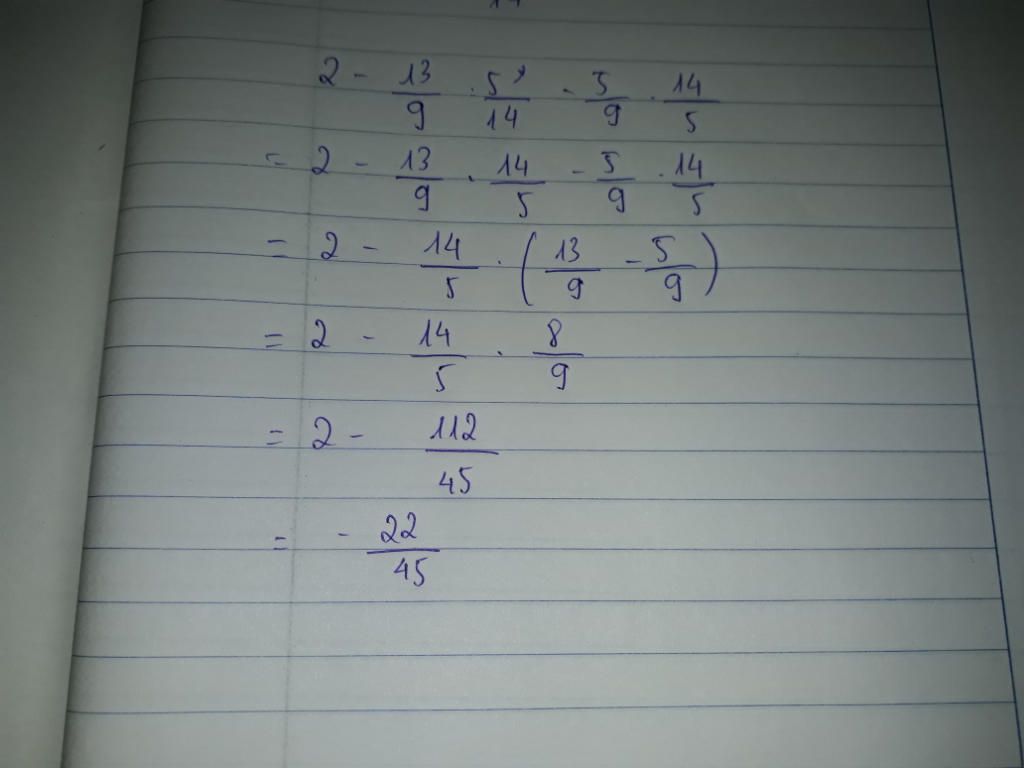 2 - 13/9 . 5/14 - 5/9 . 14/5
= 2 - 13/9 . 14/5 - 5/9 . 14/5
= 2 - 14/5 . (13/9 - 5/9)
= 2 - 14/5 . 8/9
= 2 - 112/45
= - 22/45